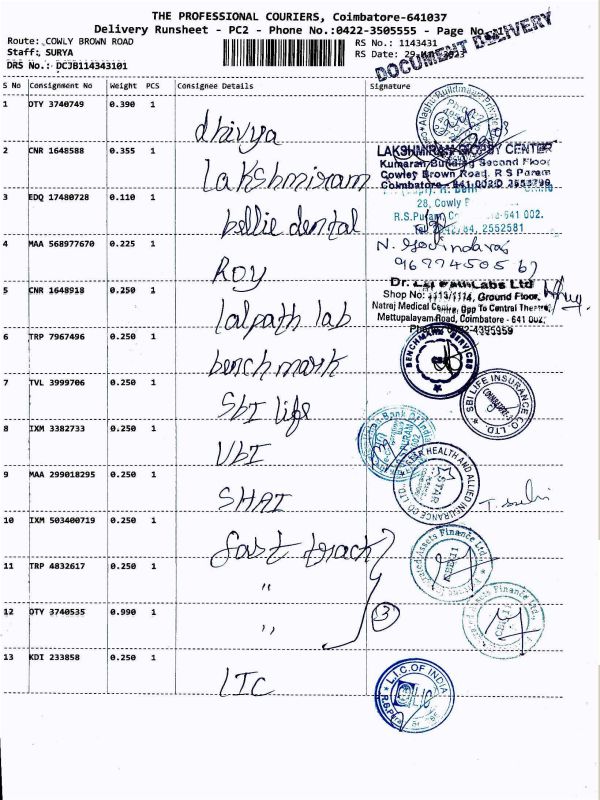 THE PROFESSIONAL COURIERS, Coimbatore-641037
Delivery Runsheet - PC2 - Phone No.:0422-3505555 - Page No.
Route: COWLY BROWN ROAD RS No.: 1143431
Staff: SURYA RS Date: 29
DRS No.: DCJB114343101
DOCUMENT DELIVERY
S No Consignment No Weight PCS Consignee Details Signature
1 OTY 3740749 0.390 1 dhivya
2 CNR 1648588 0.355 1 Lakshmiram
LAKSHMIRAM CENTER
Kumaran Building Second Floor
Cowley Brown Road, R S Puram
Coimbatore - 641 002
3 EDQ 17480728 0.110 1 bellie dental
28, Cowly
R.S.Puram, 641 002.
2552581
4 MAA 568977670 0.225 1 ROY
N. Govindaraj
5 CNR 1648918 0.250 1 lalpath lab
Dr. Lal PathLabs Ltd
Shop No: 1113/1114, Ground Floor,
Natraj Medical Centre, Opp To Central Theatre,
Mettupalayam Road, Coimbatore - 641 002.
Phone: 0422-4395959
6 TRP 7967496 0.250 1 benchmark
BENCHMARK SERVICES
7 TVL 3999706 0.250 1 SbI life
SBI LIFE INSURANCE CO. LTD.
8 IXM 3382733 0.250 1 UbI
Bank Of India
9 MAA 299018295 0.250 1 SHAI
STAR HEALTH AND ALLIED INSURANCE CO LTD
STAR
10 IXM 503400719 0.250 1 fast track
Assets Finance Ltd.,
11 TRP 4832617 0.250 1 "
12 OTY 3740535 0.990 1 "
3
Assets Finance Ltd.,
13 KDI 233858 0.250 1 LIC
L.I.C. OF INDIA